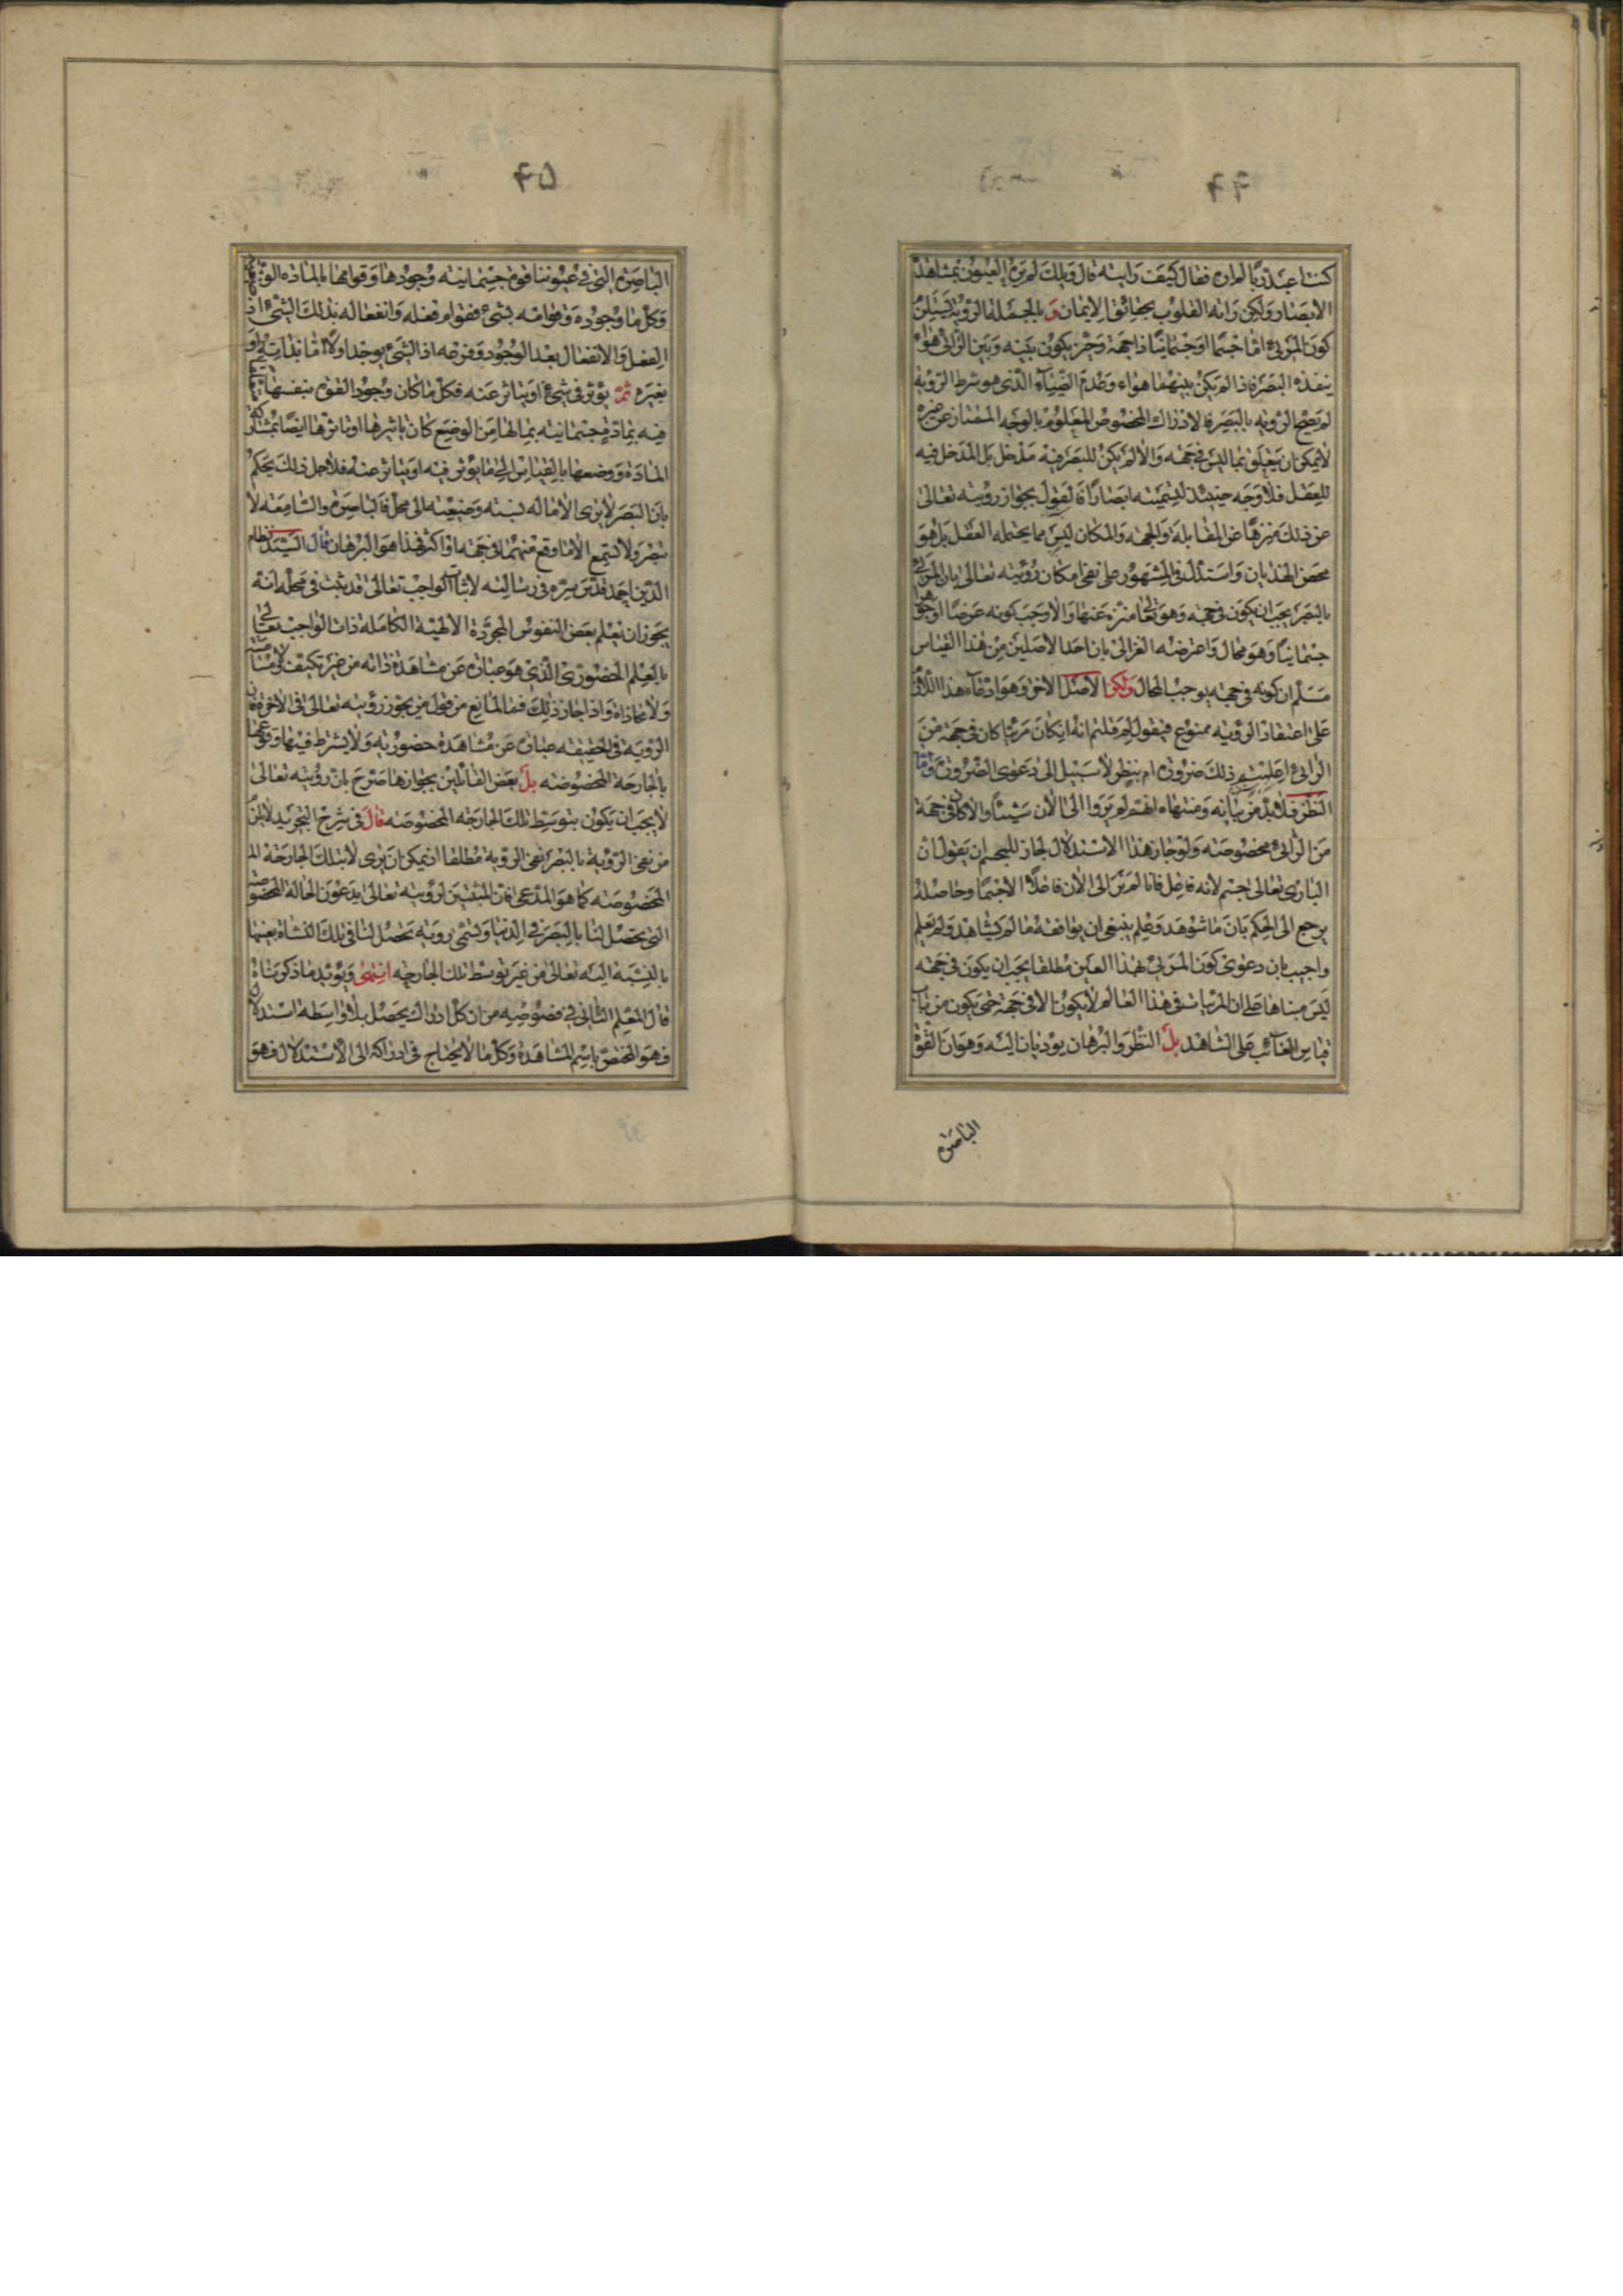 ۴۴
كنت اعبد ربا لم اره فقال كيف رايته قال ويلك لم تره العيون بمشاهدة
الابصار ولكن راته القلوب بحقائق الايمان وبالجملة الرؤية يستلزم
كون المرئي اما جسما او جسمانيا ذا جهة وحيز يكون بينه وبين الرائي هواء
ينفذه البصر فاذا لم يكن بينهما هواء وعدم الضياء الذي هو شرط الرؤية
لم يصح الرؤية بالبصر فالادراك المخصوص المعلوم بالوجه الممتاز عن غيره
لا يمكن ان يتعلق بما ليس في جهة والا لم يكن للبصر فيه مدخل بل المدخل فيه
للعقل فلا وجه حينئذ لتسميته ابصارا فالقول بجواز رؤيته تعالى
عن ذلك منزها عن المقابلة والجهة والمكان ليس مما يحتمله العقل بل هو
محض الهذيان واستدل في المشهور على نفي امكان رؤيته تعالى بان المرئي
بالبصر يجب ان يكون في جهة وهو تعالى منزه عنها والا وجب كونه عرضا او جوهرا
جسمانيا وهو محال واعترضه الغزالي بان احد الاصلين من هذا القياس
مسلم ان كونه في جهة يوجب المحال ولكن الاصل الاخر وهو ادعاء هذا اللازم
على اعتقاد الرؤية ممنوع فيقول لم قلتم انه ان كان مرئيا كان في جهة من
الرائي اعلمتم ذلك ضرورة ام بنظر لا سبيل الى دعوى الضرورة واما
النظر فلا بد من بيانه ومنتهاه انهم لم يروا الى الان شيئا الا وكان في جهة
من الرائي مخصوصة ولو جاز هذا الاستدلال لجاز للمجسم ان يقول ان
الباري تعالى جسم لانه فاعل فانا لم نر الى الان فاعلا الا جسما وحاصله
يرجع الى الحكم بان ما شوهد وعلم ينبغي ان يوافقه ما لم يشاهد ولم يعلم
واجيب بان دعوى كون المرئي بهذا العين مطلقا يجب ان يكون في جهة
ليس مبناها على ان المرئيات في هذا العالم لا يكون الا في جهة حتى يكون من باب
قياس الغائب على الشاهد بل النظر والبرهان يؤديان اليه وهو ان القوة
الباصرة
۴۵
الباصرة التي في عيوننا قوة جسمانية وجودها وقوامها بالمادة
وكل ما وجوده وقوامه بشيء فقوام فعله وانفعاله بذلك الشيء اذ
الفعل والانفعال بعد الوجود وفرعه اذ الشيء يوجد اولا اما بذاته او
بغيره ثم يؤثر في شيء او يتاثر عنه فكل ما كان وجود القوة بنفسها
فيه بمادة جسمانية بما لها من الوضع كان تاثيرها او تاثرها ايضا بمشاركة
المادة ووضعها بالقياس الى ما يؤثر فيه او يتاثر عنه فلاجل ذلك يحكم
بان البصر لا يرى الا ما له نسبة وضعية الى محل فالباصرة والسامعة لا
تبصر ولا تسمع الا ما وقع منهما في جهة او اكثر فهذا هو البرهان قال السيد نظام
الدين احمد قدس سره في رسالته لاثبات الواجب تعالى قد ثبت في محله انه
يجوز ان تعلم بعض النفوس المجردة الالهية الكاملة ذات الواجب تعالى
بالعلم الحضوري الذي هو عبارة عن مشاهدة ذاته من غير تكيف ولا مسامتة
ولا محاذاة واذا جاز ذلك فما المانع من قول من يجوز رؤيته تعالى في الاخرة فان
الرؤية في الحقيقة عبارة عن مشاهدة حضورية ولا يشترط فيها وقوعها
بالجارحة المخصوصة بل بعض القائلين بجوازها صرح بان رؤيته تعالى
لا يجب ان يكون بتوسط تلك الجارحة المخصوصة قال في شرح التجريد لا يلزم
من نفي الرؤية بالبصر نفي الرؤية مطلقا اذ يمكن ان يرى لا بتلك الجارحة
المخصوصة كما هو المدعى فان المثبتين لرؤيته تعالى يدعون الحالة المخصوصة
التي يحصل لنا بالبصر في الدنيا وتسمى رؤية تحصل لنا في تلك النشاة بعينها
بالنسبة اليه تعالى من غير توسط تلك الجارحة انتهى ويؤيد ما ذكرناه
قال المعلم الثاني في فصوصه من ان كل ادراك يحصل بلا واسطة استدلال
فهو المخص باسم المشاهدة وكل ما لا يحتاج في ادراكه الى الاستدلال فهو